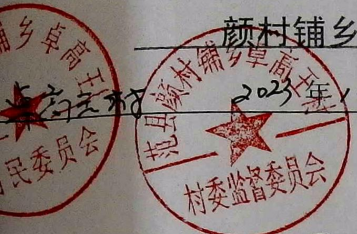 颜村铺乡
2023年
乡卓高王
民委员会
范县颜村铺乡卓高王村
村委监督委员会